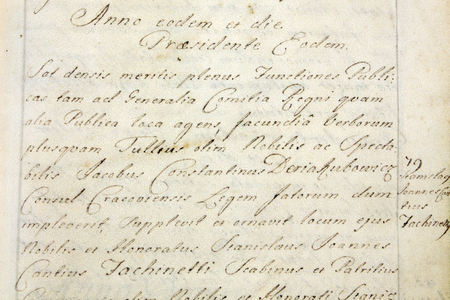 Anno eodem et die.
Præsidente Eodem.
Sol densis meritis plenus Functiones Publi-
cas tam ad Generalia Comitia Regni quam
alia Publica loca agens, facundiâ Verborum
plusquam Tullius olim Nobilis ac Specta-
bilis Jacobus Constantinus
Consul Cracoviensis Legem fatorum dum
impleverit, Supplevit et ornavit locum ejus
Nobilis et Honoratus Stanislaus Joannes
Cantius Tachinetti Scabinus et Patritius
Nobilis et Honorati
79
Stanislaq
Joannes Can
tius
Tachinetti